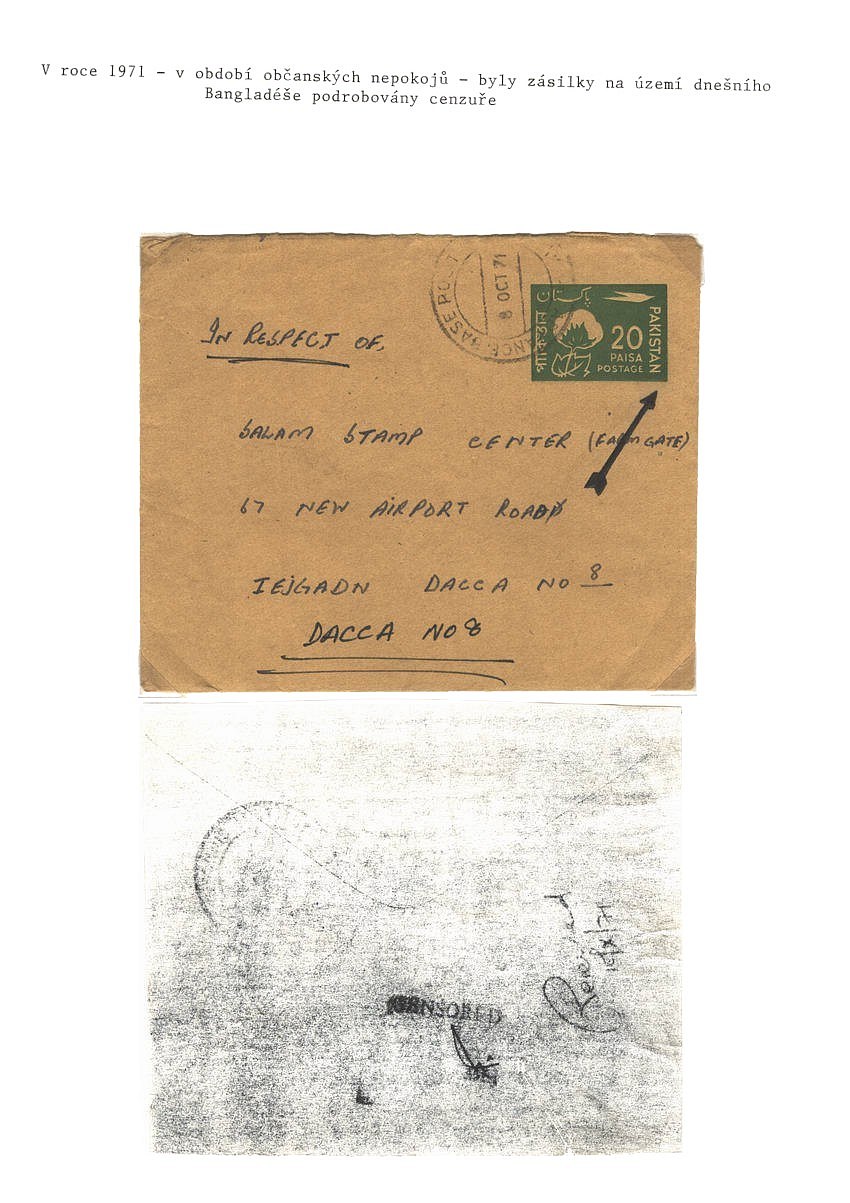 V roce 1971 – v období občanských nepokojů – byly zásilky na území dnešního
Bangladéše podrobovány cenzuře
BASE PO
8 OCT 71
پاکستان
PAKISTAN
20
PAISA
POSTAGE
IN RESPECT OF,
SALAM STAMP CENTER (FARMGATE)
67 NEW AIRPORT ROAD
TEJGAON DACCA NO 8
DACCA NO 8
CENSORED